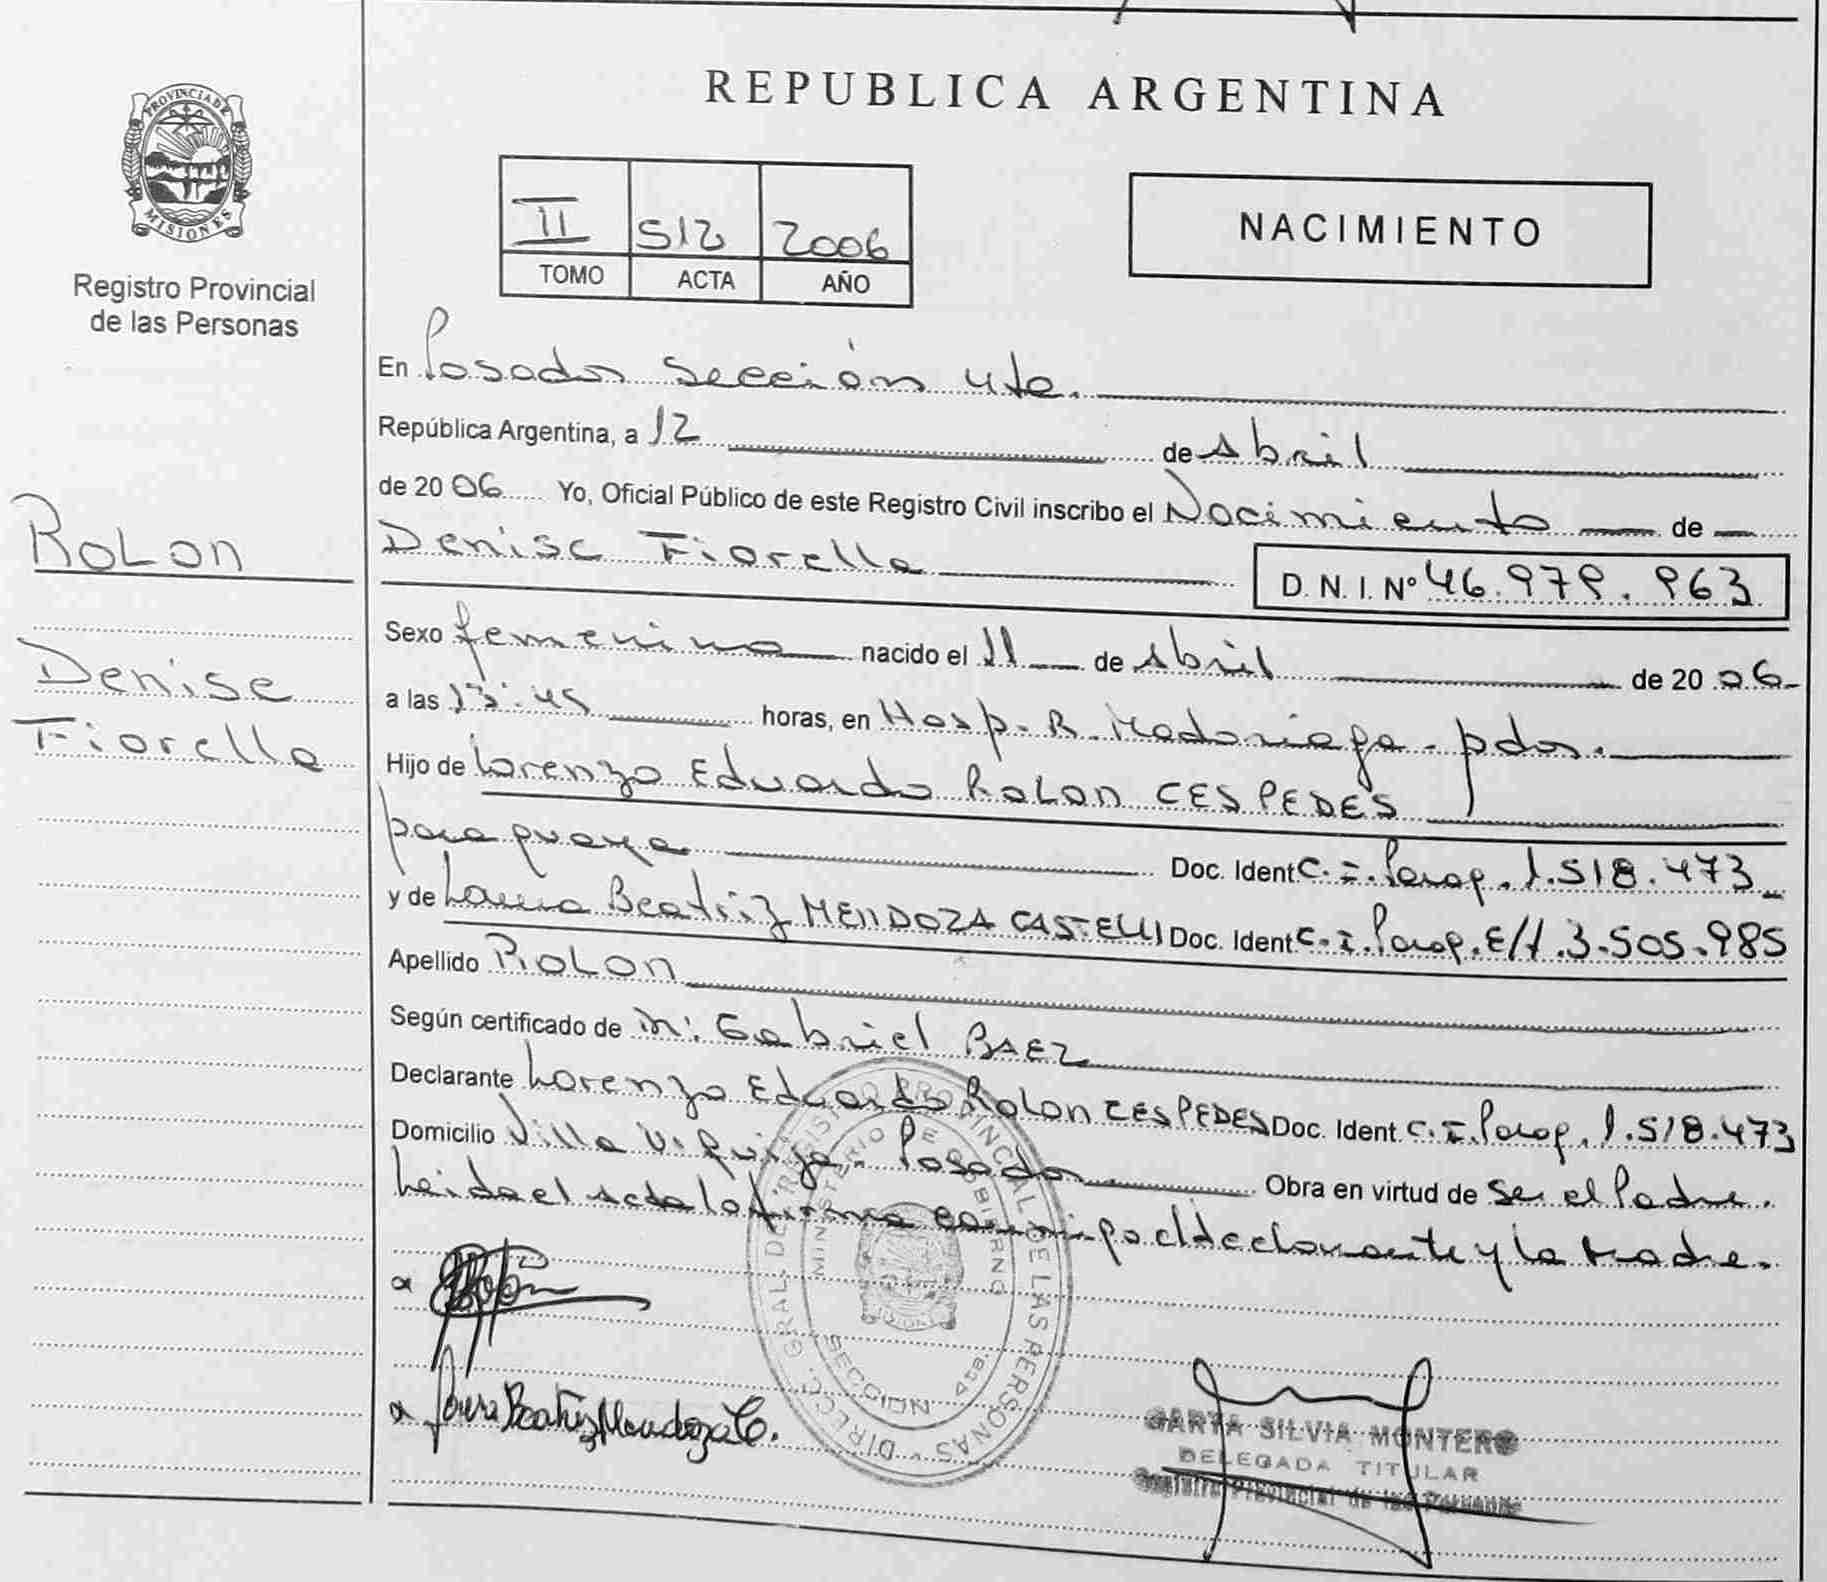 REPUBLICA ARGENTINA
PROVINCIA DE
MISIONES
Registro Provincial
de las Personas
II 512 2006
TOMO ACTA AÑO
NACIMIENTO
En Posadas Sección 4ta.
República Argentina, a 12 de Abril
de 2006 Yo, Oficial Público de este Registro Civil inscribo el Nacimiento de
Denise Fiorella
D. N. I. Nº 46.979.963
ROLON
Denise
Fiorella
Sexo femenino nacido el 11 de Abril de 2006
a las 13:45 horas, en Hosp. R. Madariaga - pdas.
Hijo de Lorenzo Eduardo ROLON CESPEDES
paraguaya Doc. Ident C. I. Parag. 1.518.473
y de Laura Beatriz MENDOZA CASTELLI Doc. Ident C. I. Parag. 3.505.985
Apellido ROLON
Según certificado de Gabriel BAEZ
Declarante Lorenzo Eduardo ROLON CESPEDES Doc. Ident. C. I. Parag. 1.518.473
Domicilio Villa Urquiza - Posadas Obra en virtud de ser el Padre.
Leida el acta la firma conmigo el declarante y la Madre.
Laura Beatriz Mendoza C.
DIRECC. GRAL. DE REGISTRO PROVINCIAL DE LAS PERSONAS
MINISTERIO DE GOBIERNO
SECCION 4ta
SILVIA MONTERO
DELEGADA TITULAR
Registro Provincial de las Personas